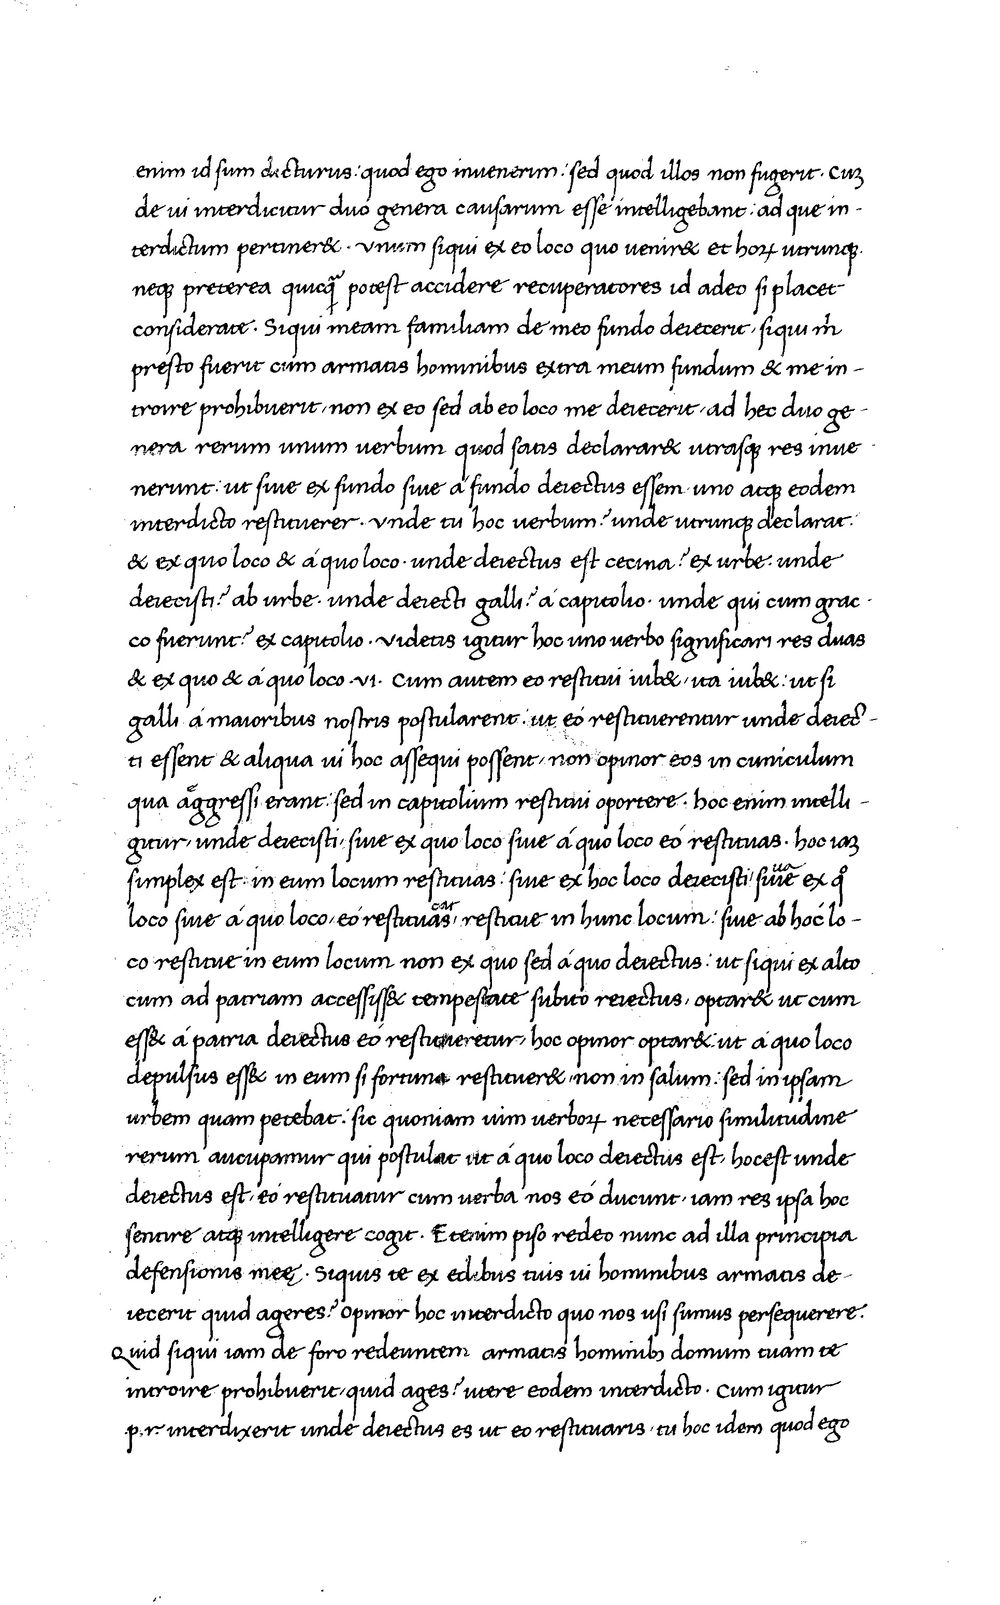 enim id sum dicturus: quod ego inuenerim: sed quod illos non fugerit. Cuʒ
de ui interdicitur duo genera causarum esse intelligebant: ad que in-
terdictum pertiner&. Vnum siqui ex eo loco quo uenir& et hoꝝ utrunqꝫ.
neqꝫ preterea quicꝗ̃ potest accidere recuperatores id adeo si placet
considerate. Siqui meam familiam de meo fundo deiecerit, siqui m̃
presto fuerit cum armatis hominibus extra meum fundum & me in-
troire prohibuerit, non ex eo sed ab eo loco me deiecerit, ad hec duo ge-
nera rerum unum uerbum quod satis declarar& utrasqꝫ res inue
nerunt: ut siue ex fundo siue á fundo deiectus essem uno atqꝫ eodem
interdicto restituerer. Vnde tu hoc uerbum? unde utrunqꝫ declarat:
& ex quo loco & á quo loco. unde deiectus est cecina? ex urbe. unde
deiecisti? ab urbe. unde deiecti galli? á capitolio. unde qui cum grac-
co fuerunt? ex capitolio. Videtis igitur hoc uno uerbo significari res duas
& ex quo & á quo loco .VI. Cum autem eo restitui iub&, ita iub&: ut si
galli á maioribus nostris postularent: ut eó restituerentur unde deiec-
ti essent & aliqua ui hoc assequi possent, non opinor eos in cuniculum
qua aggressi erant: sed in capitolium restitui oportere. hoc enim intelli-
gitur, unde deiecisti, siue ex quo loco siue á quo loco eó restituas. hoc iaʒ
simplex est. in eum locum restituas: siue ex hoc loco deiecisti siue ex qͦ
loco siue á quo loco, eó restituas, restitue in hunc locum: siue ab hoc lo-
co restitue in eum locum non ex quo sed á quo deiectus: ut siqui ex alto
cum ad patriam accessiss& tempestate subito reiectus, optar& ut cum
ess& á patria deiectus eó restitueretur, hoc opinor optar&: ut á quo loco
depulsus ess& in eum si fortuna restituer&, non in salum: sed in ipsam
urbem quam petebat: sic quoniam uim uerboꝝ necessario similitudine
rerum aucupamur qui postulat ut á quo loco deiectus est, hocest unde
deiectus est, eó restituatur cum uerba nos eó ducunt, iam res ipsa hoc
sentire atqꝫ intelligere cogit. Etenim piso redeo nunc ad illa principia
defensionis meę. Siquis te ex edibus tuis ui hominibus armatis de-
iecerit quid ageres? opinor hoc interdicto quo nos usi sumus persequerere.
Quid siqui iam de foro redeuntem armatis hominibꝫ domum tuam te
introire prohibuerit, quid ages? utere eodem interdicto. Cum igitur
p.r. interdixerit unde deiectus es ut eo restituaris, tu hoc idem quod ego